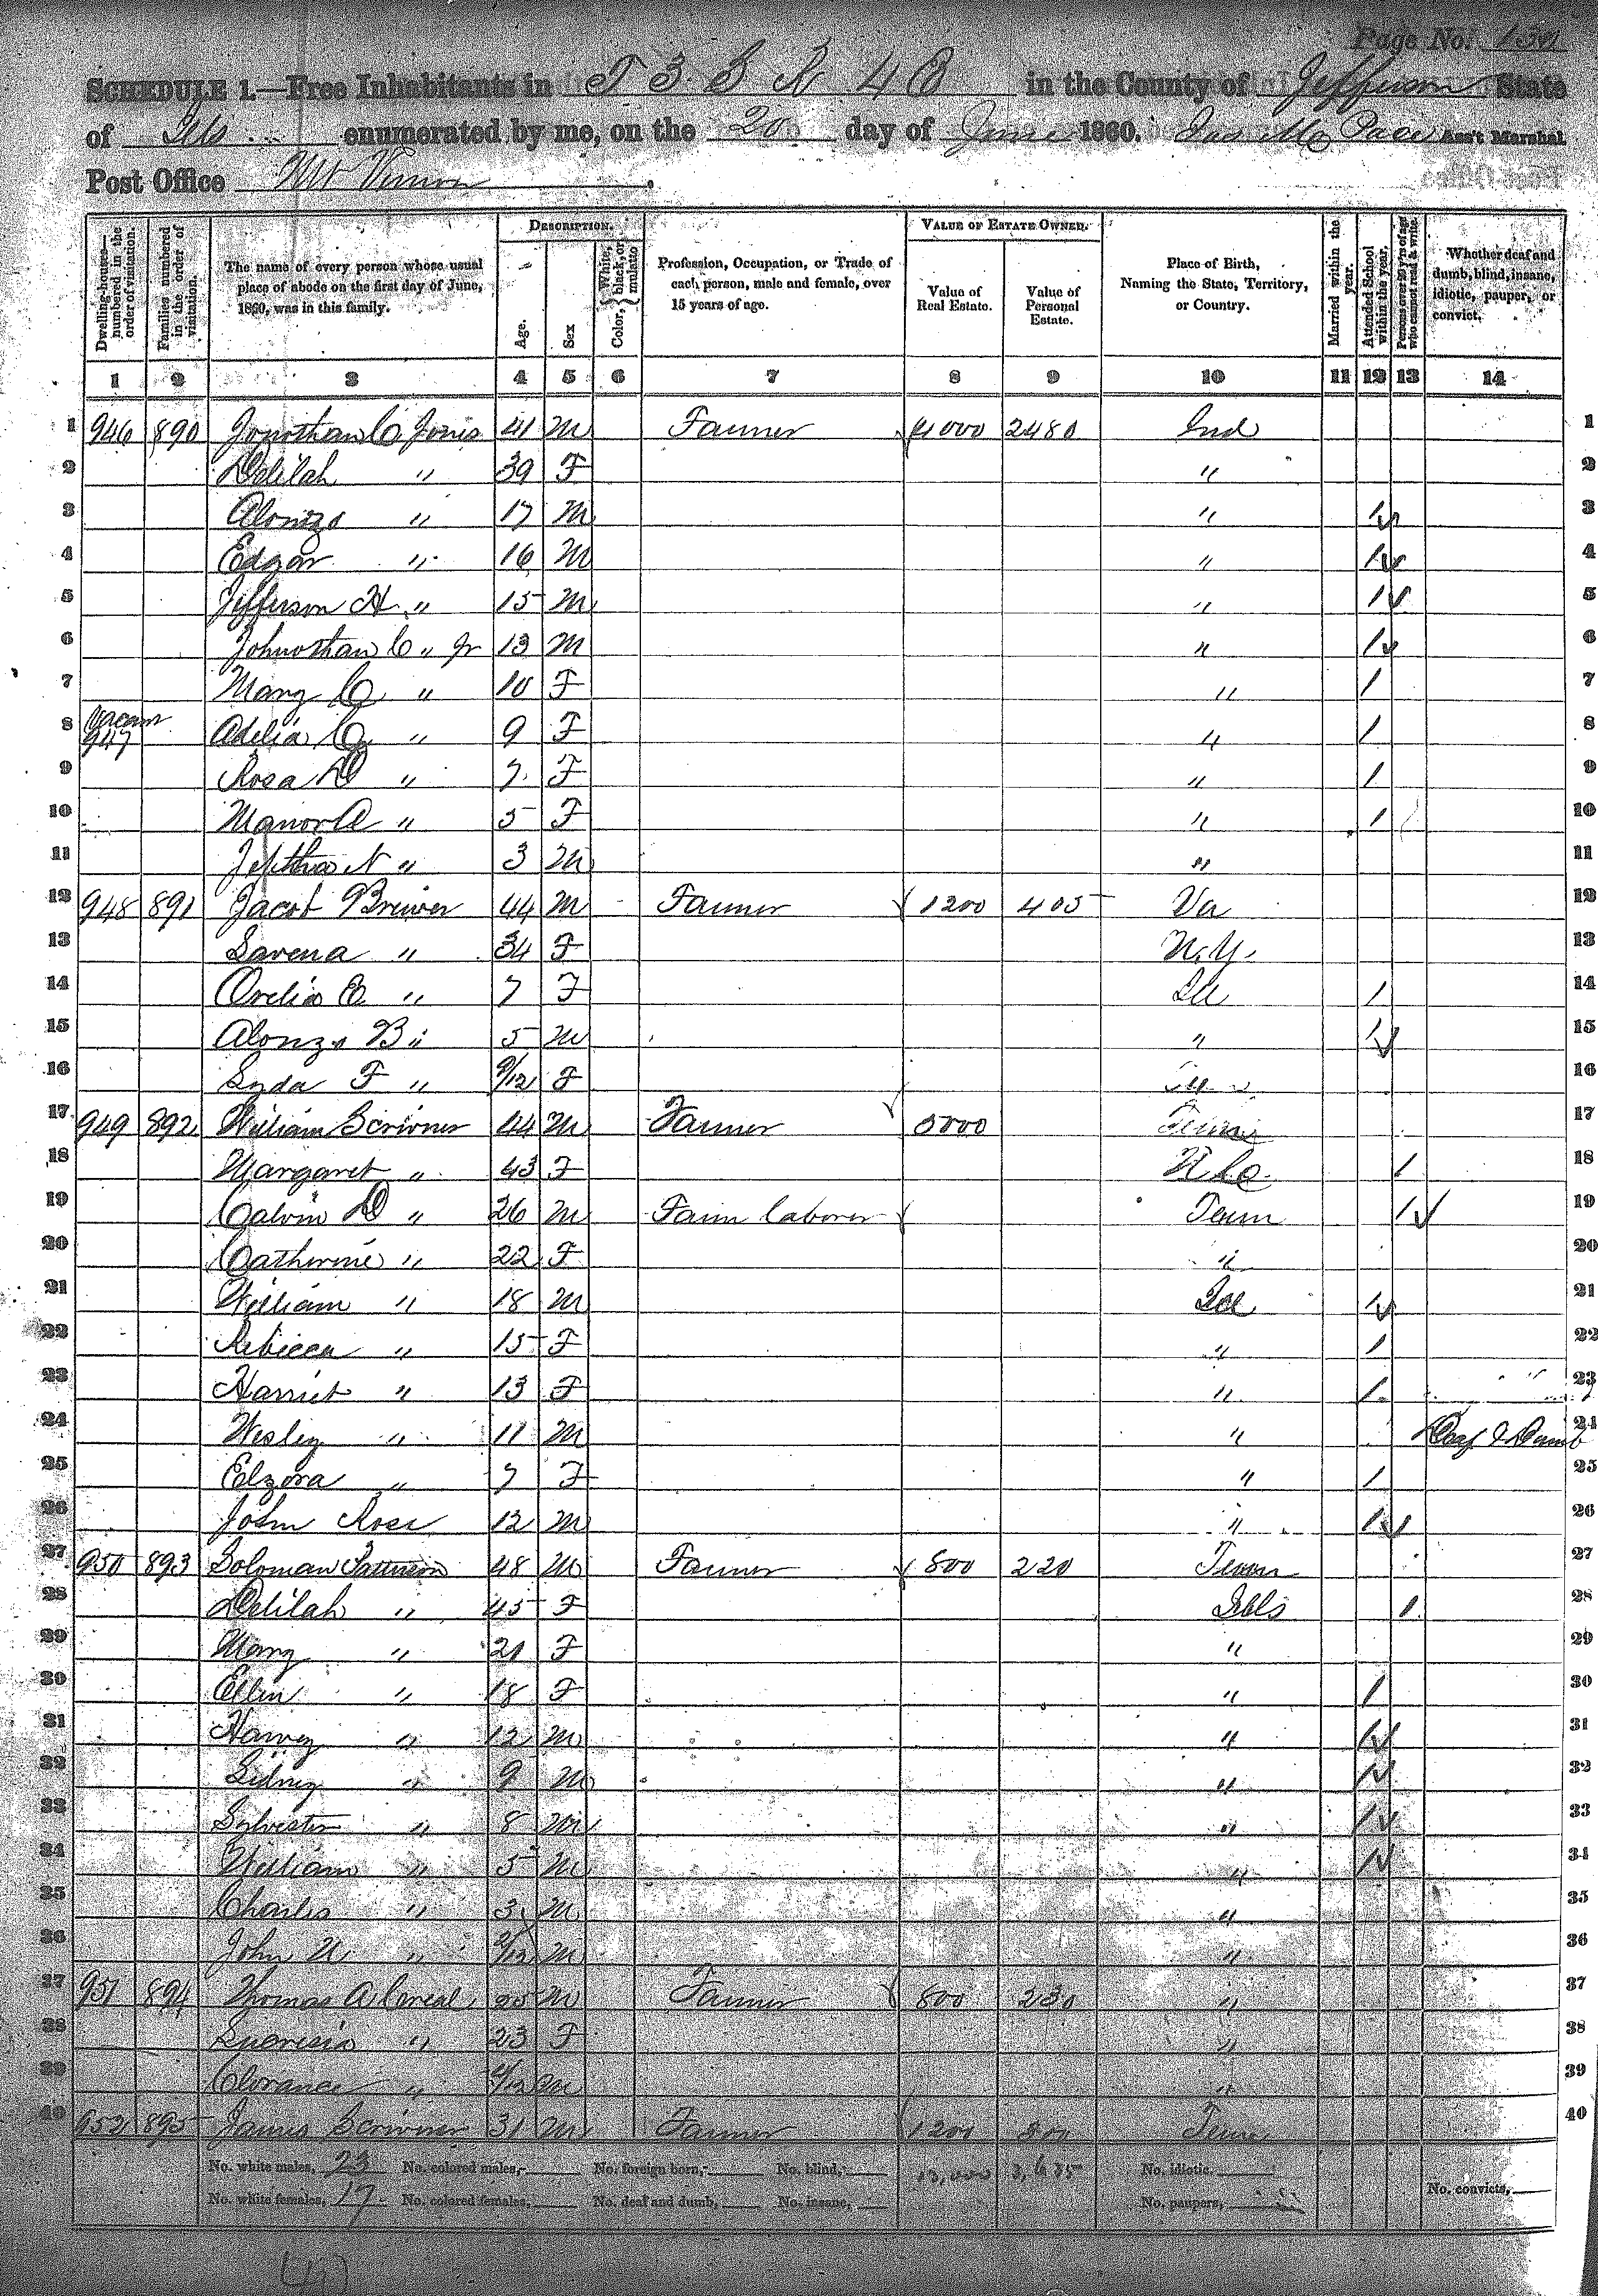 Page No.
SCHEDULE 1.—Free Inhabitants in T 3 S R 4 E in the County of Jefferson State
of Ills enumerated by me, on the 20 day of June 1860. Jas M Pace Ass't Marshal.
Post Office Mt Vernon.
Dwelling-houses—numbered in the order of visitation.
Families numbered in the order of visitation.
The name of every person whose usual place of abode on the first day of June, 1860, was in this family.
DESCRIPTION.
Age.
Sex
Color, { White, black, or mulatto
Profession, Occupation, or Trade of each person, male and female, over 15 years of age.
VALUE OF ESTATE OWNED.
Value of Real Estate.
Value of Personal Estate.
Place of Birth, Naming the State, Territory, or Country.
Married within the year.
Attended School within the year.
Persons over 20 y'rs of age who cannot read & write.
Whether deaf and dumb, blind, insane, idiotic, pauper, or convict.
1 2 3 4 5 6 7 8 9 10 11 12 13 14
1 946 890 Jonothan C Jones 41 M Farmer 4000 2480 Ind 1
2 Delilah " 39 F " 2
3 Alonzo " 17 M " / 3
4 Edgar " 16 M " / 4
5 Jefferson H " 15 M " / 5
6 Johnothan C " Jr 13 M " / 6
7 Mary C " 10 F " / 7
8 Vacant 947 Adelia C " 9 F " / 8
9 Rosa D " 7 F " / 9
10 Manor A " 5 F " / 10
11 Jeptha N " 3 M " 11
12 948 891 Jacob Brewer 44 M Farmer 1200 405 Va 12
13 Lavena " 34 F N.Y. 13
14 Orelia E " 7 F Ill / 14
15 Alonzo B " 5 M " / 15
16 Lyda F " 9/12 F 16
17 949 892 William Scrivner 44 M Farmer 5000 Tenn 17
18 Margaret " 43 F N Ca / 18
19 Calvin D " 26 M Farm laborer Tenn / 19
20 Catherine " 22 F " 20
21 William " 18 M Ill / 21
22 Rebicca " 15 F " / 22
23 Harriet " 13 F " / 23
24 Wesley " 11 M " Deaf & Dumb 24
25 Elzora " 7 F " / 25
26 John Rose 12 M " / 26
27 950 893 Soloman Patterson 48 M Farmer 800 220 Tenn 27
28 Delilah " 45 F Ills / 28
29 Mary " 21 F " 29
30 Ellin " 18 F " / 30
31 Harvey " 12 M " / 31
32 Sidney " 9 M " / 32
33 Sylvester " 8 M " / 33
34 William " 5 M " / 34
35 Charles " 3 M " 35
36 John U " M " 36
37 951 894 Thomas A 25 M Farmer 800 230 " 37
38 " 23 F " 38
39 Clorance " M " 39
40 952 895 James Scrivner 31 M Farmer 1200 Tenn 40
No. white males, 23 No. colored males, No. foreign born, No. blind, 13,000 3,635 No. idiotic
No. white females, 17 No. colored females, No. deaf and dumb, No. insane, No. paupers, No. convicts,